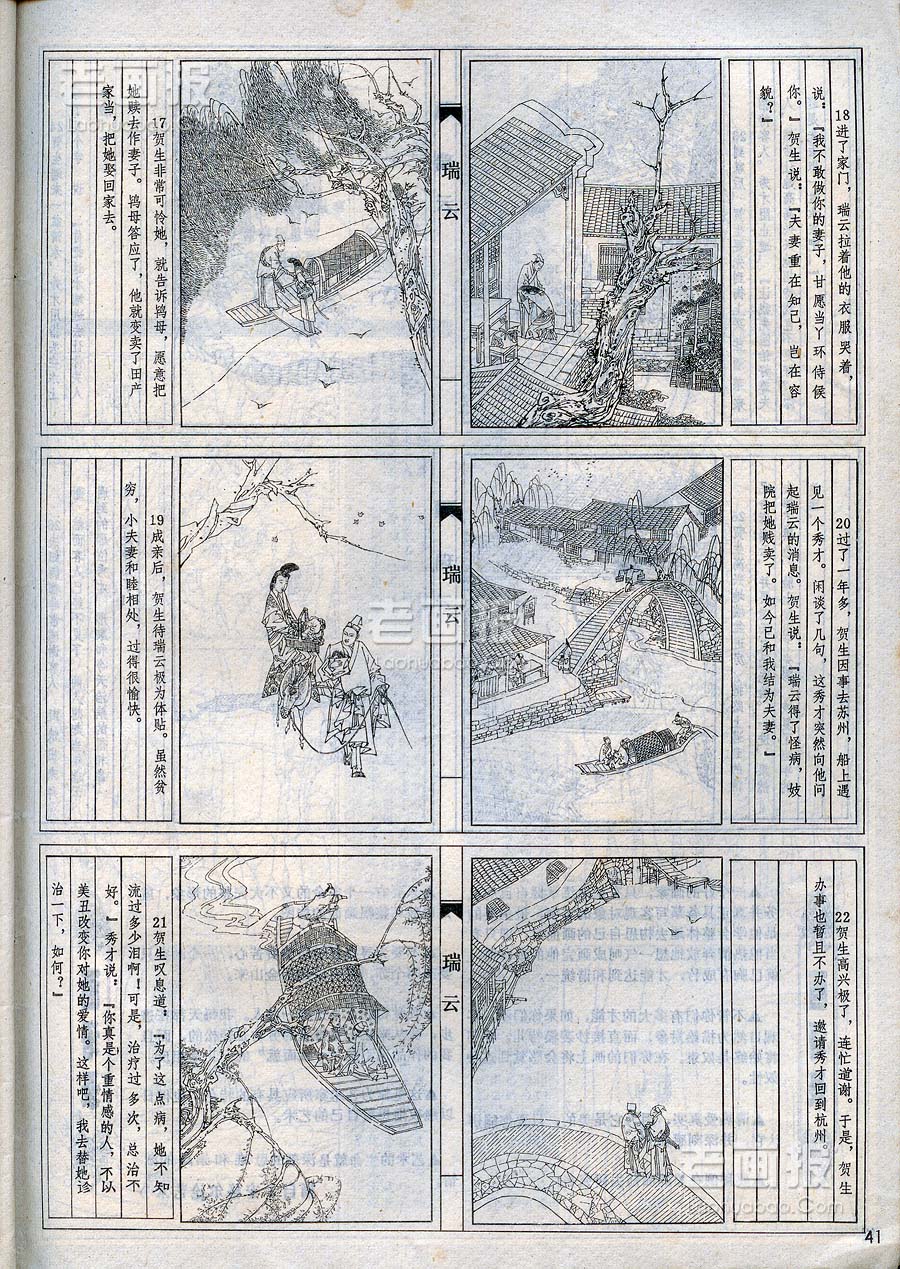 17贺生非常可怜她，就告诉鸨母，愿意把
她赎去作妻子。鸨母答应了，他就变卖了田产
家当，把她娶回家去。
瑞云
18进了家门，瑞云拉着他的衣服哭着，
说：『我不敢做你的妻子，甘愿当丫环侍候
你。』贺生说：『夫妻重在知己，岂在容
貌？』
19成亲后，贺生待瑞云极为体贴。虽然贫
穷，小夫妻和睦相处，过得很愉快。
瑞云
20过了一年多，贺生因事去苏州，船上遇
见一个秀才。闲谈了几句，这秀才突然向他问
起瑞云的消息。贺生说：『瑞云得了怪病，妓
院把她贱卖了。如今已和我结为夫妻。』
21贺生叹息道：『为了这点病，她不知
流过多少泪啊！可是，治疗过多次，总治不
好。』秀才说：『你真是个重情感的人，不以
美丑改变你对她的爱情。这样吧，我去替她诊
治一下，如何？』
瑞云
22贺生高兴极了，连忙道谢。于是，贺生
办事也暂且不办了，邀请秀才回到杭州
41
老画报
老画报
laohuabao.com
老画报
laohuabao.com